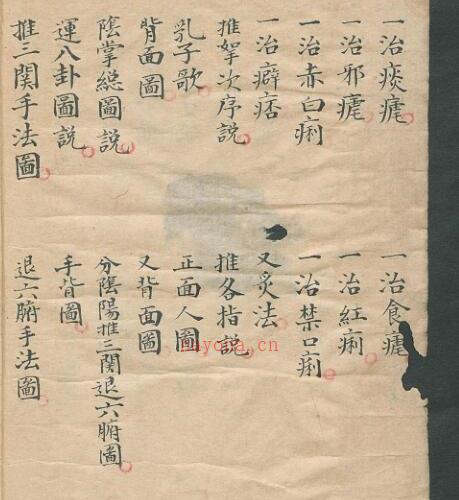 一治痰瘧
一治食瘧
一治邪瘧
一治紅痢
一治赤白痢
一治禁口痢
一治癖痞
又灸法
推拏次序說
推各指說
乳子歌
正面人圖
背面圖
又背面圖
陰掌總圖說
分陰陽推三関退六腑圖
運八卦圖說
手背圖
推三関手法圖
退六腑手法圖